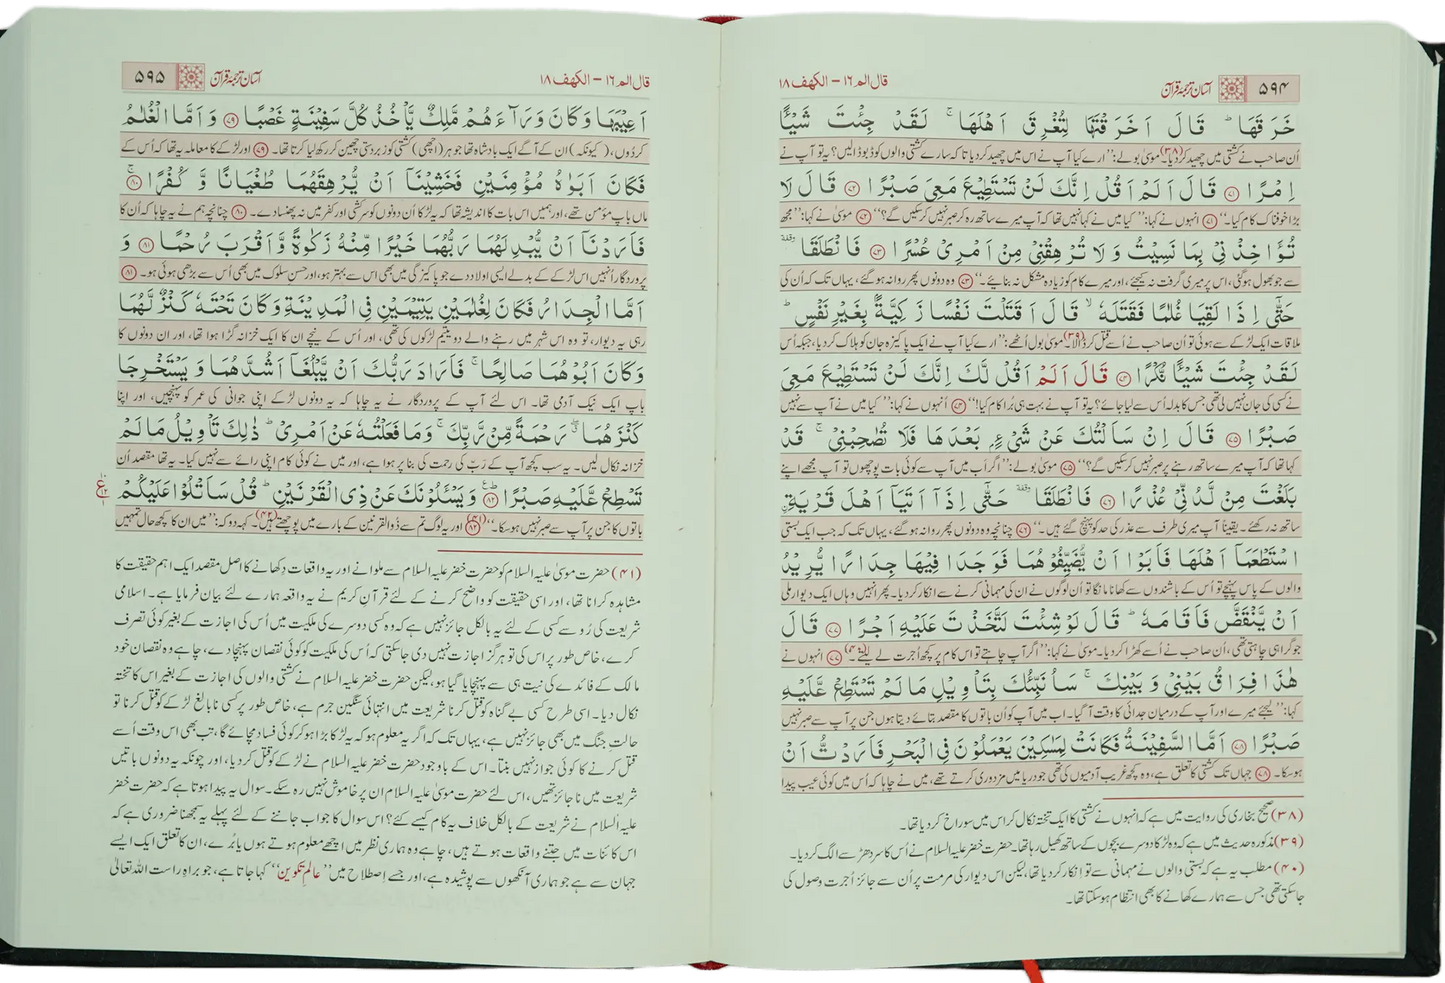 ۵۹۴ آسان ترجمۂ قرآن قال الم ۱۶ – الکہف ۱۸
خَرَقَهَا ؕ قَالَ اَخَرَقْتَهَا لِتُغْرِقَ اَهْلَهَا ۚ لَقَدْ جِئْتَ شَيْـًٔا
اُن صاحب نے کشتی میں چھید کردیا۔(۳۸) موسیٰ بولے: ’’ارے کیا آپ نے اس میں چھید کردیا تاکہ سارے کشتی والوں کو ڈبو ڈالیں؟ یہ تو آپ نے
اِمْرًا ﴿۷۱﴾ قَالَ اَلَمْ اَقُلْ اِنَّكَ لَنْ تَسْتَطِيْعَ مَعِيَ صَبْرًا ﴿۷۲﴾ قَالَ لَا
بڑا خوفناک کام کیا۔‘‘ ﴿۷۱﴾ انہوں نے کہا: ’’کیا میں نے کہا نہیں تھا کہ آپ میرے ساتھ رہ کر صبر نہیں کرسکیں گے؟‘‘ ﴿۷۲﴾ موسیٰ نے کہا: ’’مجھ
تُؤَاخِذْنِيْ بِمَا نَسِيْتُ وَلَا تُرْهِقْنِيْ مِنْ اَمْرِيْ عُسْرًا ﴿۷۳﴾ فَانْطَلَقَا ۥ وقفة
سے جو بھول ہوگئی، اس پر میری گرفت نہ کیجئے، اور میرے کام کو زیادہ مشکل نہ بنائیے۔‘‘ ﴿۷۳﴾ وہ دونوں پھر روانہ ہوگئے، یہاں تک کہ اُن کی
حَتّٰۤى اِذَا لَقِيَا غُلٰمًا فَقَتَلَهٗ ۙ قَالَ اَقَتَلْتَ نَفْسًا زَكِيَّةًۢ بِغَيْرِ نَفْسٍ ؕ
ملاقات ایک لڑکے سے ہوئی تو اُن صاحب نے اُسے قتل کر ڈالا۔(۳۹) موسیٰ بول اُٹھے: ’’ارے کیا آپ نے ایک پاکیزہ جان کو ہلاک کردیا، جبکہ اُس
لَقَدْ جِئْتَ شَيْـًٔا نُّكْرًا ﴿۷۴﴾ قَالَ اَلَمْ اَقُلْ لَّكَ اِنَّكَ لَنْ تَسْتَطِيْعَ مَعِيَ
نے کسی کی جان نہیں لی تھی جس کا بدلہ اُس سے لیا جائے؟ یہ تو آپ نے بہت ہی بُرا کام کیا!‘‘ ﴿۷۴﴾ اُنہوں نے کہا: ’’کیا میں نے آپ سے نہیں
صَبْرًا ﴿۷۵﴾ قَالَ اِنْ سَاَلْتُكَ عَنْ شَيْءٍۭ بَعْدَهَا فَلَا تُصٰحِبْنِيْ ۚ قَدْ
کہا تھا کہ آپ میرے ساتھ رہنے پر صبر نہیں کرسکیں گے؟‘‘ ﴿۷۵﴾ موسیٰ بولے: ’’اگر اَب میں آپ سے کوئی بات پوچھوں تو آپ مجھے اپنے
بَلَغْتَ مِنْ لَّدُنِّيْ عُذْرًا ﴿۷۶﴾ فَانْطَلَقَا ۥ وقفة حَتّٰۤى اِذَاۤ اَتَيَاۤ اَهْلَ قَرْيَةِۣ
ساتھ نہ رکھئے۔ یقیناً آپ میری طرف سے عذر کی حد کو پہنچ گئے ہیں۔‘‘ ﴿۷۶﴾ چنانچہ وہ دونوں پھر روانہ ہوگئے، یہاں تک کہ جب ایک بستی
اسْتَطْعَمَاۤ اَهْلَهَا فَاَبَوْا اَنْ يُّضَيِّفُوْهُمَا فَوَجَدَا فِيْهَا جِدَارًا يُّرِيْدُ
والوں کے پاس پہنچے تو اُس کے باشندوں سے کھانا مانگا تو اُن لوگوں نے ان کی مہمانی کرنے سے انکار کردیا۔ پھر انہیں وہاں ایک دیوار ملی
اَنْ يَّنْقَضَّ فَاَقَامَهٗ ؕ قَالَ لَوْ شِئْتَ لَتَّخَذْتَ عَلَيْهِ اَجْرًا ﴿۷۷﴾ قَالَ
جو گرا ہی چاہتی تھی، اُن صاحب نے اُسے کھڑا کردیا۔ موسیٰ نے کہا: ’’اگر آپ چاہتے تو اس کام پر کچھ اُجرت لے لیتے۔‘‘(۴۰) ﴿۷۷﴾ انہوں نے
هٰذَا فِرَاقُ بَيْنِيْ وَبَيْنِكَ ۚ سَاُنَبِّئُكَ بِتَاْوِيْلِ مَا لَمْ تَسْتَطِعْ عَّلَيْهِ
کہا: ’’لیجئے میرے اور آپ کے درمیان جدائی کا وقت آگیا۔ اب میں آپ کو اُن باتوں کا مقصد بتائے دیتا ہوں جن پر آپ سے صبر نہیں
صَبْرًا ﴿۷۸﴾ اَمَّا السَّفِيْنَةُ فَكَانَتْ لِمَسٰكِيْنَ يَعْمَلُوْنَ فِي الْبَحْرِ فَاَرَدْتُّ اَنْ
ہوسکا۔ ﴿۷۸﴾ جہاں تک کشتی کا تعلق ہے، وہ کچھ غریب آدمیوں کی تھی جو دریا میں مزدوری کرتے تھے، میں نے چاہا کہ اُس میں کوئی عیب پیدا
(۳۸) صحیح بخاری کی روایت میں ہے کہ انہوں نے کشتی کا ایک تختہ نکال کر اس میں سوراخ کردیا تھا۔
(۳۹) مذکورہ حدیث میں ہے کہ وہ لڑکا دوسرے بچوں کے ساتھ کھیل رہا تھا۔ حضرت خضر علیہ السلام نے اُس کا سر دھڑ سے الگ کردیا۔
(۴۰) مطلب یہ ہے کہ بستی والوں نے مہمانی سے تو انکار کردیا تھا، لیکن اس دیوار کی مرمت پر اُن سے جائز اُجرت وصول کی
جاسکتی تھی جس سے ہمارے کھانے کا بھی انتظام ہوسکتا تھا۔
قال الم ۱۶ – الکہف ۱۸ آسان ترجمۂ قرآن ۵۹۵
اَعِيْبَهَا وَكَانَ وَرَآءَهُمْ مَّلِكٌ يَّاْخُذُ كُلَّ سَفِيْنَةٍ غَصْبًا ﴿۷۹﴾ وَاَمَّا الْغُلٰمُ
کردُوں، (کیونکہ) ان کے آگے ایک بادشاہ تھا جو ہر (اچھی) کشتی کو زبردستی چھین کر رکھ لیا کرتا تھا۔ ﴿۷۹﴾ اور لڑکے کا معاملہ یہ تھا کہ اُس کے
فَكَانَ اَبَوٰهُ مُؤْمِنَيْنِ فَخَشِيْنَاۤ اَنْ يُّرْهِقَهُمَا طُغْيَانًا وَّكُفْرًا ﴿۸۰﴾ۚ
ماں باپ مؤمن تھے، اور ہمیں اس بات کا اندیشہ تھا کہ یہ لڑکا اُن دونوں کو سرکشی اور کفر میں نہ پھنسا دے۔ ﴿۸۰﴾ چنانچہ ہم نے یہ چاہا کہ اُن کا
فَاَرَدْنَاۤ اَنْ يُّبْدِلَهُمَا رَبُّهُمَا خَيْرًا مِّنْهُ زَكٰوةً وَّاَقْرَبَ رُحْمًا ﴿۸۱﴾ وَ
پروردگار اُنہیں اس لڑکے کے بدلے ایسی اولاد دے جو پاکیزگی میں بھی اس سے بہتر ہو، اور حسنِ سلوک میں بھی اُس سے بڑھی ہوئی ہو۔ ﴿۸۱﴾
اَمَّا الْجِدَارُ فَكَانَ لِغُلٰمَيْنِ يَتِيْمَيْنِ فِي الْمَدِيْنَةِ وَكَانَ تَحْتَهٗ كَنْزٌ لَّهُمَا
رہی یہ دیوار، تو وہ اس شہر میں رہنے والے دو یتیم لڑکوں کی تھی، اور اُس کے نیچے ان کا ایک خزانہ گڑا ہوا تھا، اور ان دونوں کا
وَكَانَ اَبُوْهُمَا صَالِحًا ۚ فَاَرَادَ رَبُّكَ اَنْ يَّبْلُغَاۤ اَشُدَّهُمَا وَيَسْتَخْرِجَا
باپ ایک نیک آدمی تھا۔ اس لئے آپ کے پروردگار نے یہ چاہا کہ یہ دونوں لڑکے اپنی جوانی کی عمر کو پہنچیں، اور اپنا
كَنْزَهُمَا ۖۗ رَحْمَةً مِّنْ رَّبِّكَ ۚ وَمَا فَعَلْتُهٗ عَنْ اَمْرِيْ ؕ ذٰلِكَ تَاْوِيْلُ مَا لَمْ
خزانہ نکال لیں۔ یہ سب کچھ آپ کے رَبّ کی رحمت کی بنا پر ہوا ہے، اور میں نے کوئی کام اپنی رائے سے نہیں کیا۔ یہ تھا مقصد اُن
تَسْطِعْ عَّلَيْهِ صَبْرًا ﴿۸۲﴾ؕ وَيَسْـَٔلُوْنَكَ عَنْ ذِي الْقَرْنَيْنِ ؕ قُلْ سَاَتْلُوْا عَلَيْكُمْ
باتوں کا جن پر آپ سے صبر نہیں ہوسکا۔‘‘(۴۱) ﴿۸۲﴾ اور یہ لوگ تم سے ذُوالقرنین کے بارے میں پوچھتے ہیں۔(۴۲) کہہ دو کہ: ’’میں ان کا کچھ حال تمہیں
(۴۱) حضرت موسیٰ علیہ السلام کو حضرت خضر علیہ السلام سے ملوانے اور یہ واقعات دِکھانے کا اصل مقصد ایک اہم حقیقت کا
مشاہدہ کرانا تھا، اور اسی حقیقت کو واضح کرنے کے لئے قرآنِ کریم نے یہ واقعہ ہمارے لئے بیان فرمایا ہے۔ اسلامی
شریعت کی رُو سے کسی کے لئے یہ بالکل جائز نہیں ہے کہ وہ کسی دوسرے کی ملکیت میں اُس کی اجازت کے بغیر کوئی تصرف
کرے، خاص طور پر اس کی تو ہرگز اجازت نہیں دی جاسکتی کہ اُس کی ملکیت کو کوئی نقصان پہنچادے، چاہے وہ نقصان خود
مالک کے فائدے کی نیت ہی سے پہنچایا گیا ہو، لیکن حضرت خضر علیہ السلام نے کشتی والوں کی اجازت کے بغیر اس کا تختہ
نکال دیا۔ اسی طرح کسی بے گناہ کو قتل کرنا شریعت میں انتہائی سنگین جرم ہے، خاص طور پر کسی نابالغ لڑکے کو قتل کرنا تو
حالتِ جنگ میں بھی جائز نہیں ہے، یہاں تک کہ اگر یہ معلوم ہو کہ یہ لڑکا بڑا ہوکر کوئی فساد مچائے گا، تب بھی اس وقت اُسے
قتل کرنے کا کوئی جواز نہیں بنتا۔ اس کے باوجود حضرت خضر علیہ السلام نے لڑکے کو قتل کردیا، اور چونکہ یہ دونوں باتیں
شریعت میں ناجائز تھیں، اس لئے حضرت موسیٰ علیہ السلام ان پر خاموش نہیں رہ سکے۔ سوال یہ پیدا ہوتا ہے کہ حضرت خضر
علیہ السلام نے شریعت کے بالکل خلاف یہ کام کیسے کئے؟ اس سوال کا جواب جاننے کے لئے پہلے یہ سمجھنا ضروری ہے کہ
اس کائنات میں جتنے واقعات ہوتے ہیں، چاہے وہ ہماری نظر میں اچھے معلوم ہوتے ہوں یا بُرے، ان کا تعلق ایک ایسے
جہان سے ہے جو ہماری آنکھوں سے پوشیدہ ہے، اور جسے اِصطلاح میں ’’عالمِ تکوین‘‘ کہا جاتا ہے، جو براہِ راست اللہ تعالیٰ